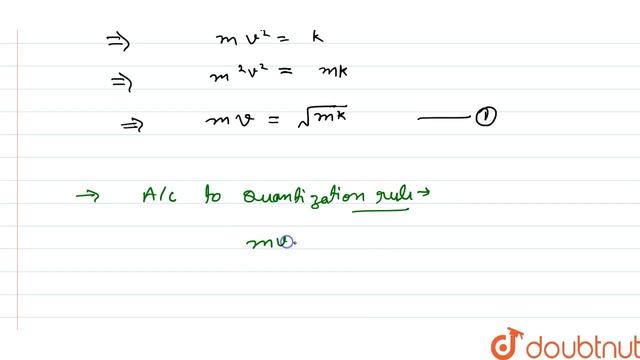 ⇒ mv² = k
⇒ m²v² = mk
⇒ mv = √mk —— ①
→ A/c to Quantization rule →
mv
doubtnut